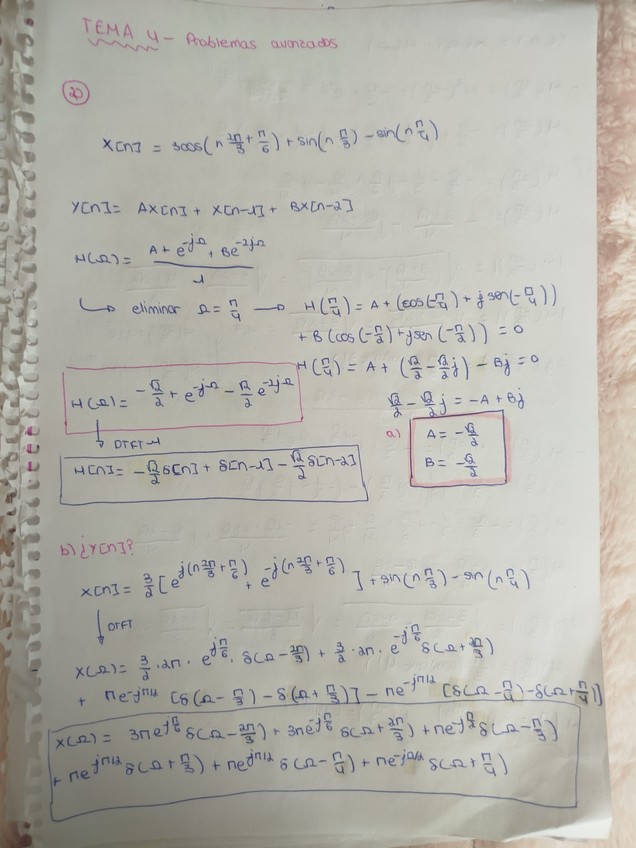 TEMA 4 - Problemas avanzados
20
X[n] = 3cos(n 2π/3 + π/6) + sin(n π/3) - sin(n π/4)
Y[n] = AX[n] + X[n-1] + BX[n-2]
H(Ω) = (A + e^-jΩ + Be^-2jΩ)/1
↳ eliminar Ω = π/4 → H(π/4) = A + (cos(-π/4) + j sen(-π/4))
+ B(cos(-π/2) + jsen(-π/2)) = 0
H(π/4) = A + (√2/2 - √2/2 j) - Bj = 0
H(Ω) = -√2/2 + e^-jΩ - √2/2 e^-2jΩ
√2/2 - √2/2 j = -A + Bj
↓ DTFT-1
a) A = -√2/2
B = -√2/2
H[n] = -√2/2 δ[n] + δ[n-1] - √2/2 δ[n-2]
b) ¿Y[n]?
X[n] = 3/2 [e^j(n 2π/3 + π/6) + e^-j(n 2π/3 + π/6)] + sin(n π/3) - sin(n π/4)
↓ DTFT
X(Ω) = 3/2 · 2π · e^jπ/6 · δ(Ω - 2π/3) + 3/2 · 2π · e^-jπ/6 δ(Ω + 2π/3)
+ πe^-jπ/2 [δ(Ω - π/3) - δ(Ω + π/3)] - πe^-jπ/2 [δ(Ω - π/4) - δ(Ω + π/4)]
X(Ω) = 3πe^jπ/6 δ(Ω - 2π/3) + 3πe^-jπ/6 δ(Ω + 2π/3) + πe^-jπ/2 δ(Ω - π/3)
+ πe^jπ/2 δ(Ω + π/3) + πe^jπ/2 δ(Ω - π/4) + πe^-jπ/2 δ(Ω + π/4)